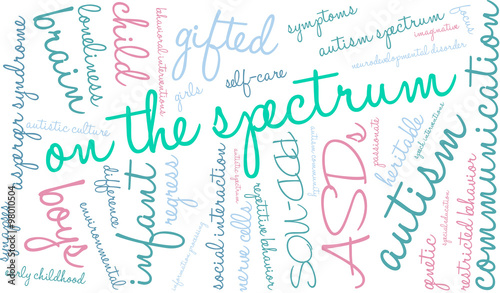 asperger syndrome
brain
loneliness
child
behavioral interventions
gifted
girls
self-care
symptoms
autism spectrum
imaginative
neurodevelopmental disorder
communication
autistic culture
on the spectrum
boys
environmental
difference
infant
regress
social interaction
nerve cells
repetitive behavior
PDD-NOS
ASDs
passionate
heritable
autism
genetic
special education
restricted behavior
early childhood
Adobe Stock | #98010504